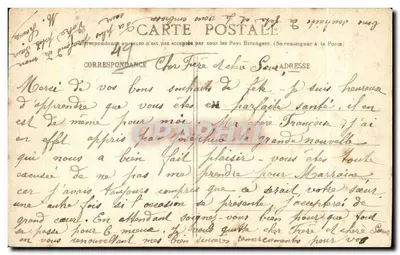 CARTE POSTALE
La Correspondance au recto n'est pas acceptée par tous les Pays Etrangers. (Se renseigner à la Poste)
CORRESPONDANCE
ADRESSE
49
Cher Frère et chère Sœur
Merci de vos bons souhaits de fête, je suis heureux
d'apprendre que vous êtes en parfaite santé, il en
est de même pour moi. Ma chère Françoise j'ai
en effet appris par grande nouvelle
qui nous a bien fait plaisir. vous êtes toute
excusée de ne pas me prendre pour Marraine
car j'avais toujours compris que ce serait votre sœur
une autre fois si l'occasion se présente j'accepterai de
grand cœur. En attendant soignez-vous bien pour que tout
se passe pour le mieux. Je vous quitte cher Frère et chère Sœur
en vous renouvellant mes bien sincères remerciements pour vos
bons souhaits de fête et vous embrasse